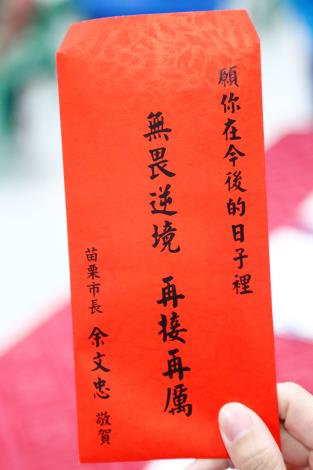 願你在今後的日子裡
無畏逆境 再接再厲
苗栗市長 余文忠 敬賀